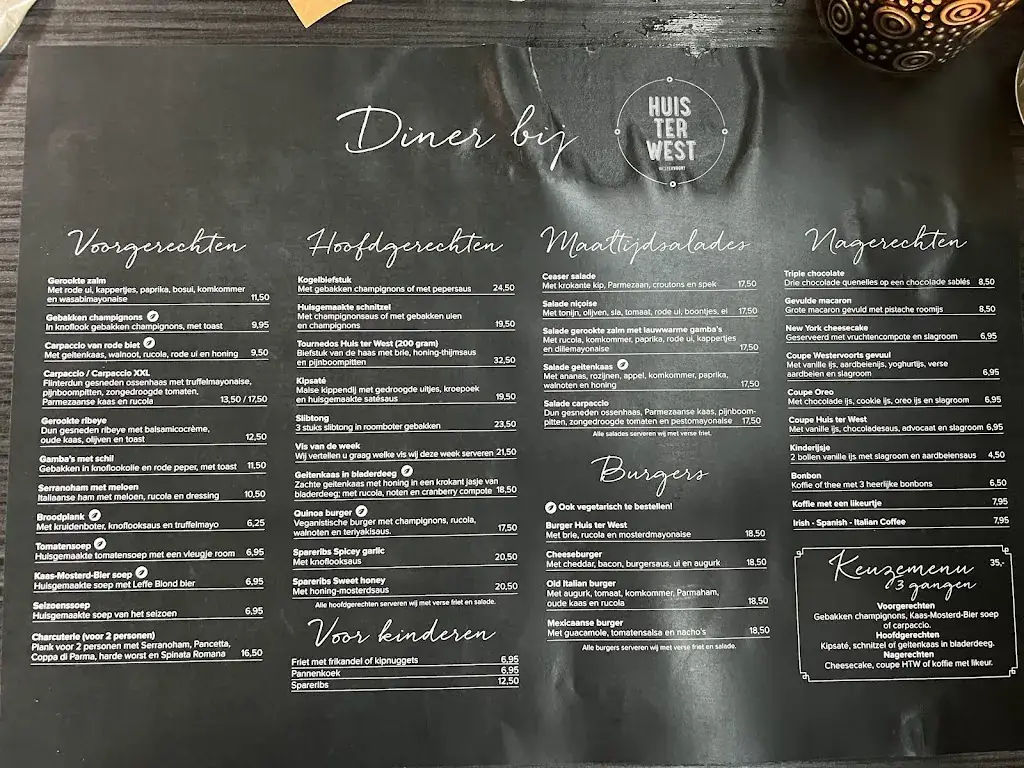 Diner bij
HUIS
TER
WEST
WESTERVOORT
Voorgerechten
Gerookte zalm
Met rode ui, kappertjes, paprika, bosui, komkommer
en wasabimayonaise 11,50
Gebakken champignons
In knoflook gebakken champignons, met toast 9,95
Carpaccio van rode biet
Met geitenkaas, walnoot, rucola, rode ui en honing 9,50
Carpaccio / Carpaccio XXL
Flinterdun gesneden ossenhaas met truffelmayonaise,
pijnboompitten, zongedroogde tomaten,
Parmezaanse kaas en rucola 13,50 / 17,50
Gerookte ribeye
Dun gesneden ribeye met balsamicocrème,
oude kaas, olijven en toast 12,50
Gamba's met schil
Gebakken in knoflookolie en rode peper, met toast 11,50
Serranoham met meloen
Italiaanse ham met meloen, rucola en dressing 10,50
Broodplank
Met kruidenboter, knoflooksaus en truffelmayo 6,25
Tomatensoep
Huisgemaakte tomatensoep met een vleugje room 6,95
Kaas-Mosterd-Bier soep
Huisgemaakte soep met Leffe Blond bier 6,95
Seizoenssoep
Huisgemaakte soep van het seizoen 6,95
Charcuterie (voor 2 personen)
Plank voor 2 personen met Serranoham, Pancetta,
Coppa di Parma, harde worst en Spinata Romana 16,50
Hoofdgerechten
Kogelbiefstuk
Met gebakken champignons of met pepersaus 24,50
Huisgemaakte schnitzel
Met champignonsaus of met gebakken uien
en champignons 19,50
Tournedos Huis ter West (200 gram)
Biefstuk van de haas met brie, honing-thijmsaus
en pijnboompitten 32,50
Kipsaté
Malse kippendij met gedroogde uitjes, kroepoek
en huisgemaakte satésaus 19,50
Slibtong
3 stuks slibtong in roomboter gebakken 23,50
Vis van de week
Wij vertellen u graag welke vis wij deze week serveren 21,50
Geitenkaas in bladerdeeg
Zachte geitenkaas met honing in een krokant jasje van
bladerdeeg; met rucola, noten en cranberry compote 18,50
Quinoa burger
Veganistische burger met champignons, rucola,
walnoten en teriyakisaus. 17,50
Spareribs Spicey garlic
Met knoflooksaus 20,50
Spareribs Sweet honey
Met honing-mosterdsaus 20,50
Alle hoofdgerechten serveren wij met verse friet en salade.
Voor kinderen
Friet met frikandel of kipnuggets 6,95
Pannenkoek 6,95
Spareribs 12,50
Maaltijdsalades
Ceaser salade
Met krokante kip, Parmezaan, croutons en spek 17,50
Salade niçoise
Met tonijn, olijven, sla, tomaat, rode ui, boontjes, ei 17,50
Salade gerookte zalm met lauwwarme gamba's
Met rucola, komkommer, paprika, rode ui, kappertjes
en dillemayonaise 17,50
Salade geitenkaas
Met ananas, rozijnen, appel, komkommer, paprika,
walnoten en honing 17,50
Salade carpaccio
Dun gesneden ossenhaas, Parmezaanse kaas, pijnboom-
pitten, zongedroogde tomaten en pestomayonaise 17,50
Alle salades serveren wij met verse friet.
Burgers
Ook vegetarisch te bestellen!
Burger Huis ter West
Met brie, rucola en mosterdmayonaise 18,50
Cheeseburger
Met cheddar, bacon, burgersaus, ui en augurk 18,50
Old Italian burger
Met augurk, tomaat, komkommer, Parmaham,
oude kaas en rucola 18,50
Mexicaanse burger
Met guacamole, tomatensalsa en nacho's 18,50
Alle burgers serveren wij met verse friet en salade.
Nagerechten
Triple chocolate
Drie chocolade quenelles op een chocolade sablés 8,50
Gevulde macaron
Grote macaron gevuld met pistache roomijs 8,50
New York cheesecake
Geserveerd met vruchtencompote en slagroom 6,95
Coupe Westervoorts gevuul
Met vanille ijs, aardbeienijs, yoghurtijs, verse
aardbeien en slagroom 6,95
Coupe Oreo
Met chocolade ijs, cookie ijs, oreo ijs en slagroom 6,95
Coupe Huis ter West
Met vanille ijs, chocoladesaus, advocaat en slagroom 6,95
Kinderijsje
2 bollen vanille ijs met slagroom en aardbeiensaus 4,50
Bonbon
Koffie of thee met 3 heerlijke bonbons 6,50
Koffie met een likeurtje 7,95
Irish - Spanish - Italian Coffee 7,95
Keuzemenu 35,-
3 gangen
Voorgerechten
Gebakken champignons, Kaas-Mosterd-Bier soep
of carpaccio.
Hoofdgerechten
Kipsaté, schnitzel of geitenkaas in bladerdeeg.
Nagerechten
Cheesecake, coupe HTW of koffie met likeur.